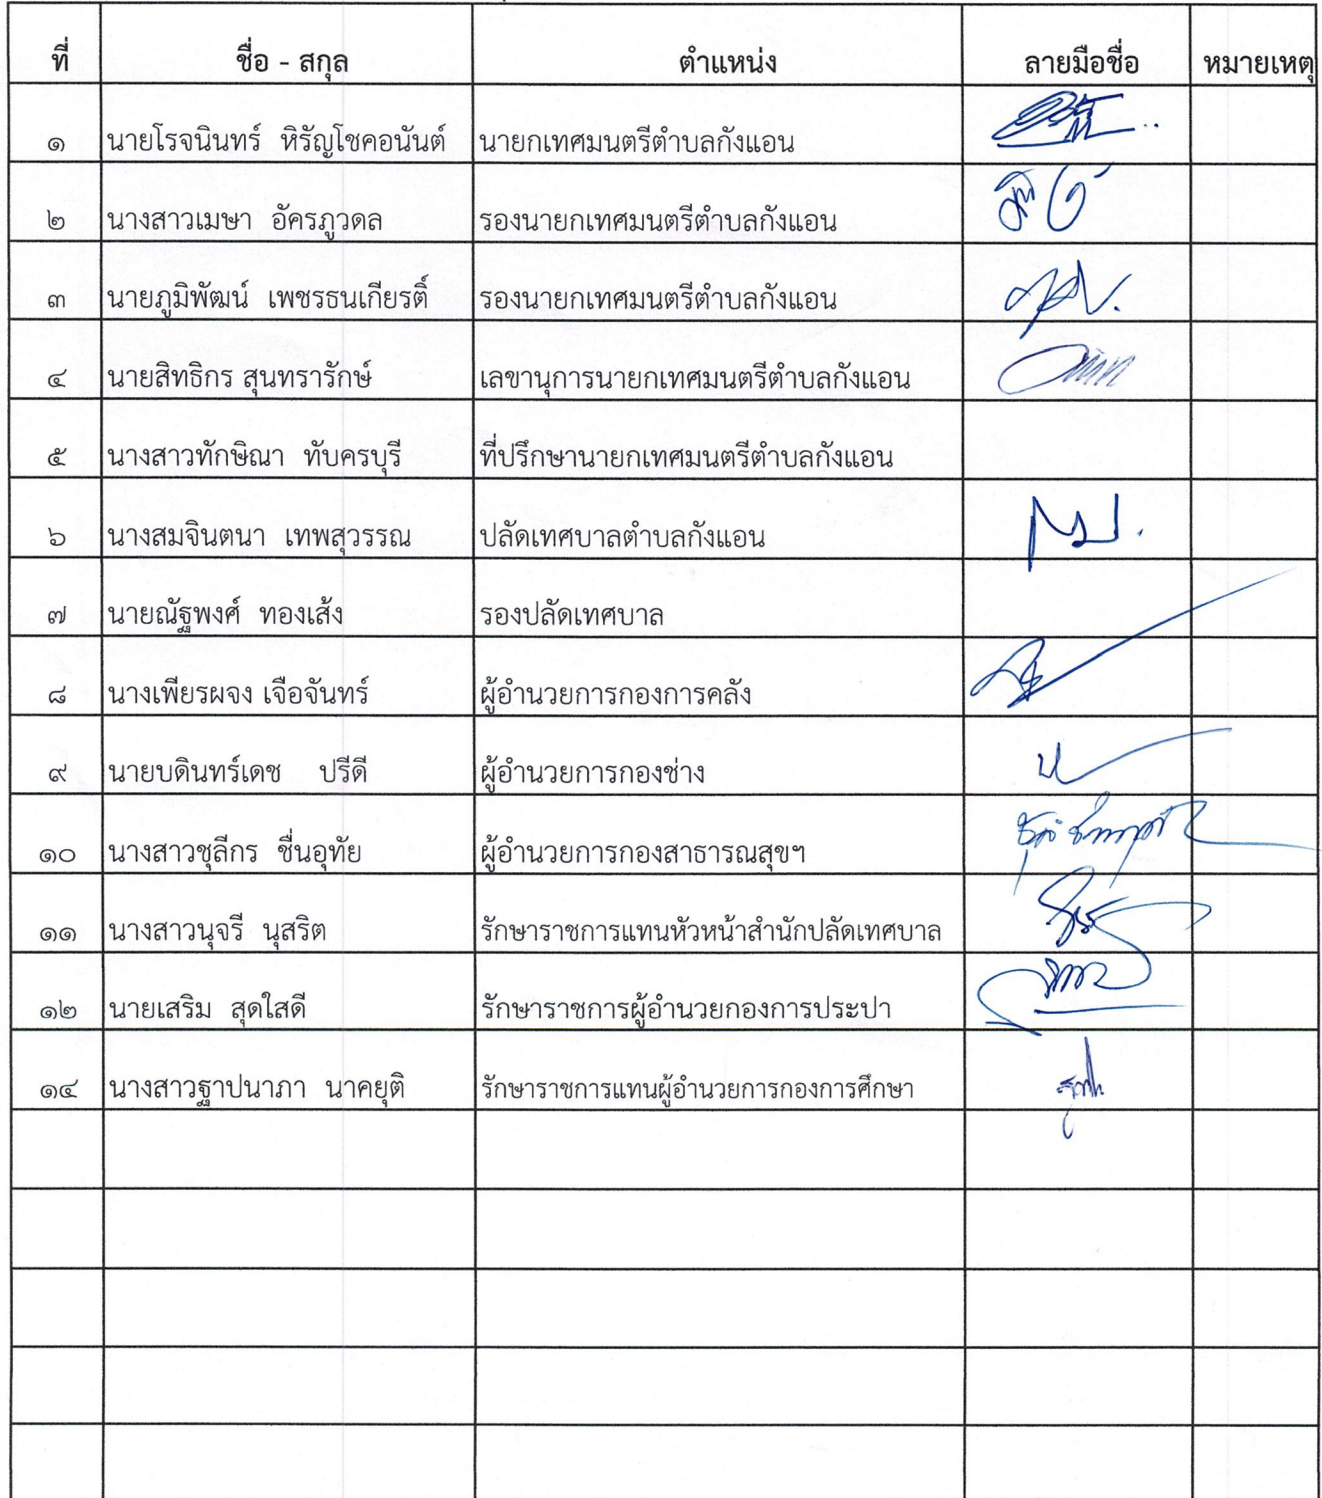 ที่ ชื่อ - สกุล ตำแหน่ง ลายมือชื่อ หมายเหตุ
๑ นายโรจนินทร์ หิรัญโชคอนันต์ นายกเทศมนตรีตำบลกังแอน
๒ นางสาวเมษา อัครภูวดล รองนายกเทศมนตรีตำบลกังแอน
๓ นายภูมิพัฒน์ เพชรธนเกียรติ์ รองนายกเทศมนตรีตำบลกังแอน
๔ นายสิทธิกร สุนทรารักษ์ เลขานุการนายกเทศมนตรีตำบลกังแอน
๕ นางสาวทักษิณา ทับครบุรี ที่ปรึกษานายกเทศมนตรีตำบลกังแอน
๖ นางสมจินตนา เทพสุวรรณ ปลัดเทศบาลตำบลกังแอน
๗ นายณัฐพงศ์ ทองเส้ง รองปลัดเทศบาล
๘ นางเพียรผจง เจือจันทร์ ผู้อำนวยการกองการคลัง
๙ นายบดินทร์เดช ปรีดี ผู้อำนวยการกองช่าง
๑๐ นางสาวชุลีกร ชื่นอุทัย ผู้อำนวยการกองสาธารณสุขฯ
๑๑ นางสาวนุจรี นุสริต รักษาราชการแทนหัวหน้าสำนักปลัดเทศบาล
๑๒ นายเสริม สุดใสดี รักษาราชการผู้อำนวยกองการประปา
๑๔ นางสาวฐาปนาภา นาคยุติ รักษาราชการแทนผู้อำนวยการกองการศึกษา